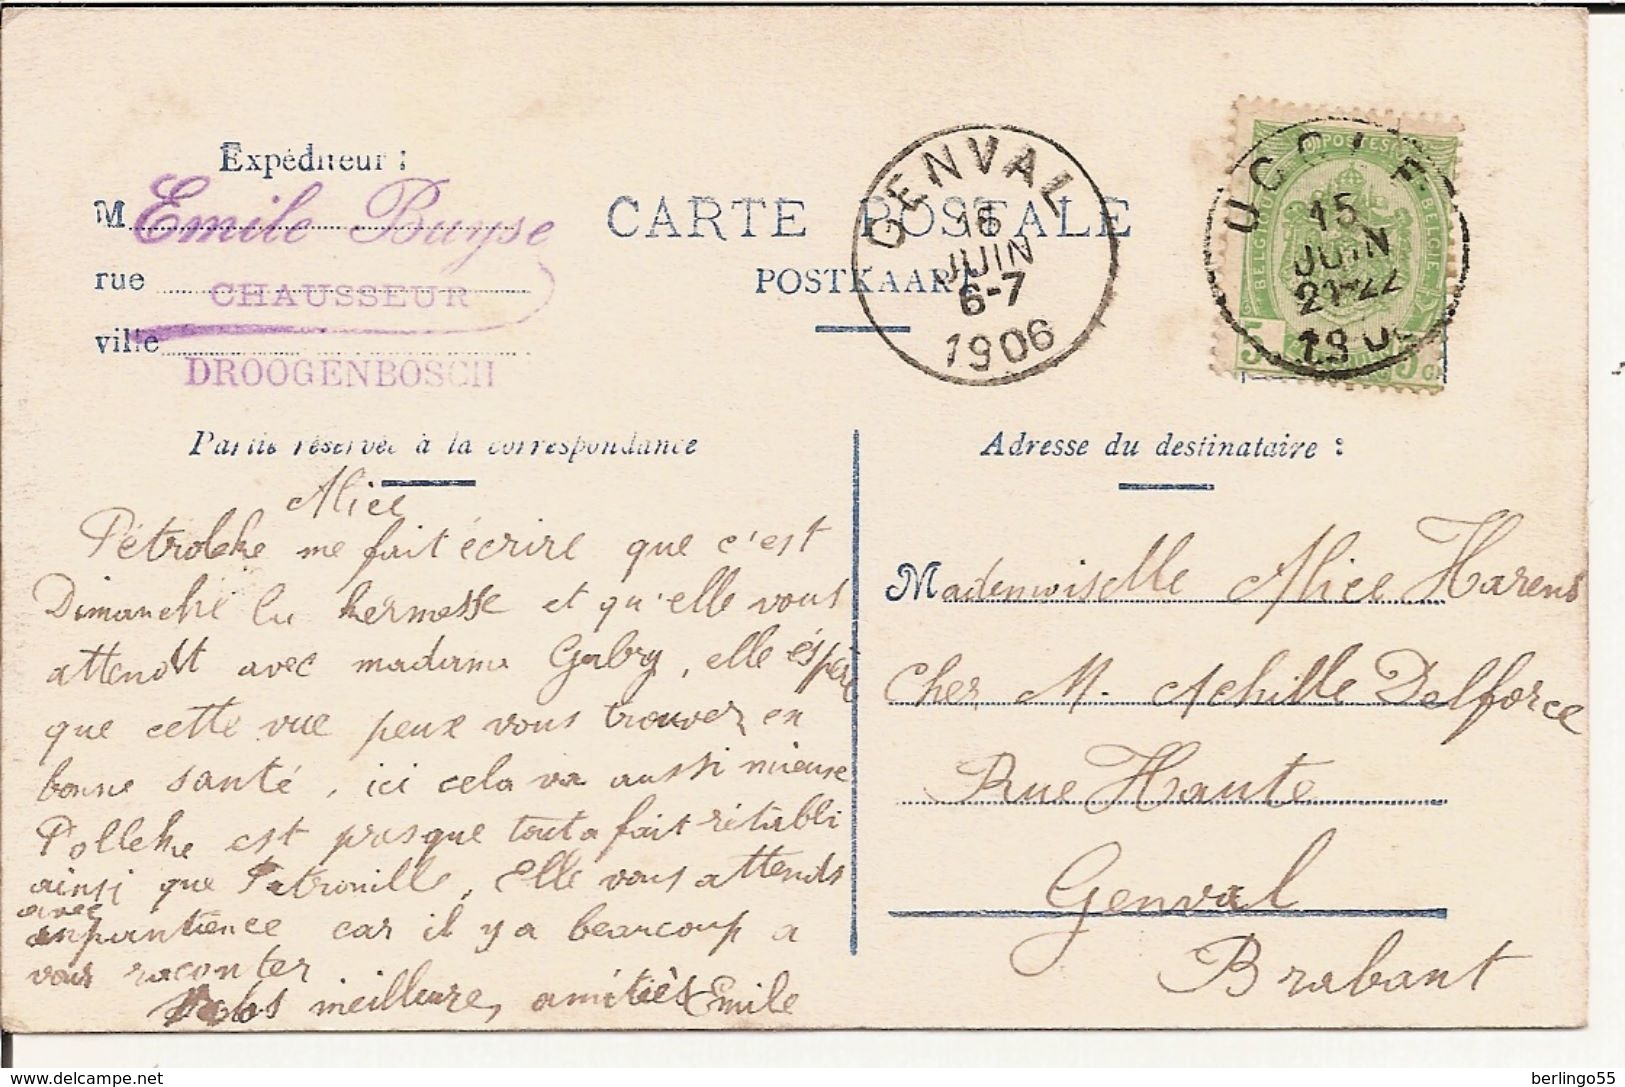 Expéditeur :
M Emile Buyse
rue CHAUSSEUR
ville
DROOGENBOSCH
CARTE POSTALE
POSTKAART
GENVAL
16
JUIN
6-7
1906
UCCLE
15
JUIN
21-22
1906
POSTES
BELGIQUE
BELGIE
5
5
Partie réservée à la correspondance
Alice
Pétroleke me fait écrire que c'est
Dimanche la kermesse et qu'elle vous
attendt avec madame Gaby, elle éspère
que cette vue peux vous trouver en
bonne santé, ici cela va aussi mieuse
Polleke est presque tout a fait rétabli
ainsi que Patrouille, Elle vous attends
avec
impantience car il y a beaucoup a
vous raconter
Vos meilleure, amitiès Emile
Adresse du destinataire :
Mademoiselle Alice Harens
Cher M. Achille Delforce
Rue Haute
Genval
Brabant
berlingo55